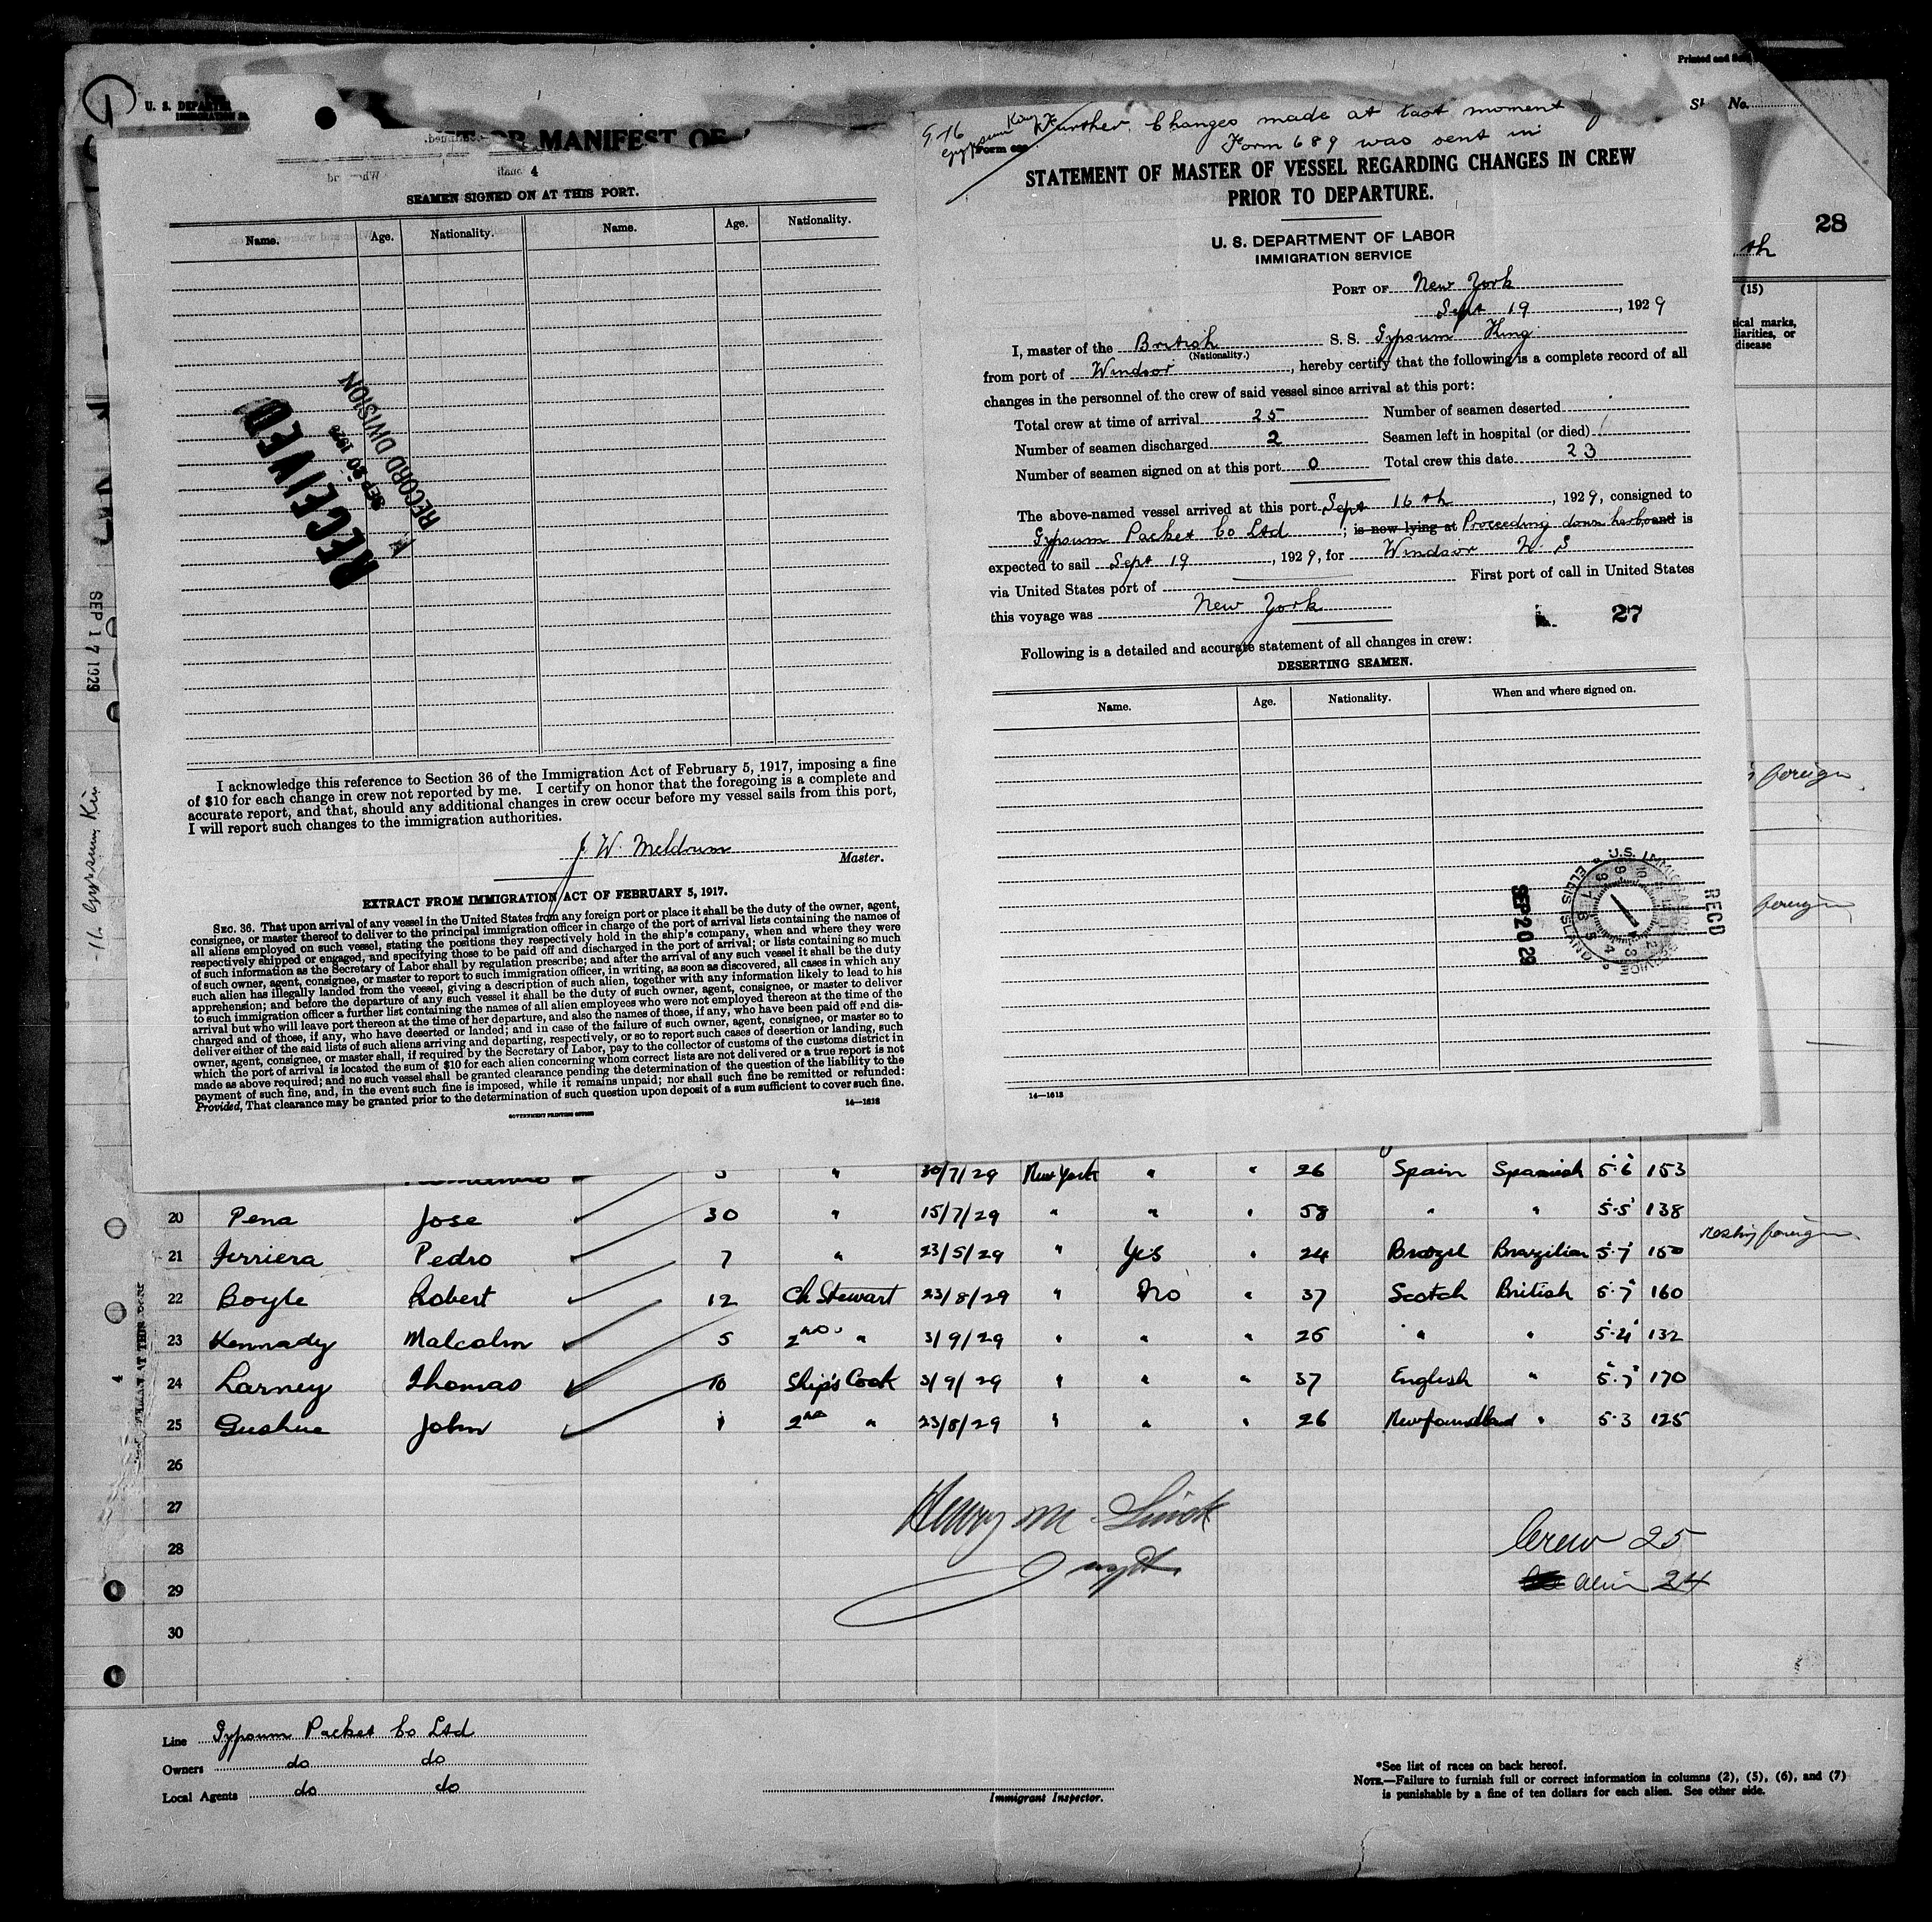 U. S. DEPARTM
IMMIGRATION SE
OR MANIFEST OF
4
SEAMEN SIGNED ON AT THIS PORT.
Name. Age. Nationality. Name. Age. Nationality.
RECEIVED
SEP 20 1929
RECORD DIVISION
I acknowledge this reference to Section 36 of the Immigration Act of February 5, 1917, imposing a fine
of $10 for each change in crew not reported by me. I certify on honor that the foregoing is a complete and
accurate report, and that, should any additional changes in crew occur before my vessel sails from this port,
I will report such changes to the immigration authorities.
J. W. Meldrum
Master.
EXTRACT FROM IMMIGRATION ACT OF FEBRUARY 5, 1917.
SEC. 36. That upon arrival of any vessel in the United States from any foreign port or place it shall be the duty of the owner, agent,
consignee, or master thereof to deliver to the principal immigration officer in charge of the port of arrival lists containing the names of
all aliens employed on such vessel, stating the positions they respectively hold in the ship's company, when and where they were
respectively shipped or engaged, and specifying those to be paid off and discharged in the port of arrival; or lists containing so much
of such information as the Secretary of Labor shall by regulation prescribe; and after the arrival of any such vessel it shall be the duty
of such owner, agent, consignee, or master to report to such immigration officer, in writing, as soon as discovered, all cases in which any
such alien has illegally landed from the vessel, giving a description of such alien, together with any information likely to lead to his
apprehension; and before the departure of any such vessel it shall be the duty of such owner, agent, consignee, or master to deliver
to such immigration officer a further list containing the names of all alien employees who were not employed thereon at the time of the
arrival but who will leave port thereon at the time of her departure, and also the names of those, if any, who have been paid off and dis-
charged and of those, if any, who have deserted or landed; and in case of the failure of such owner, agent, consignee, or master so to
deliver either of the said lists of such aliens arriving and departing, respectively, or so to report such cases of desertion or landing, such
owner, agent, consignee, or master shall, if required by the Secretary of Labor, pay to the collector of customs of the customs district in
which the port of arrival is located the sum of $10 for each alien concerning whom correct lists are not delivered or a true report is not
made as above required; and no such vessel shall be granted clearance pending the determination of the question of the liability to the
payment of such fine, and, in the event such fine is imposed, while it remains unpaid; nor shall such fine be remitted or refunded:
Provided, That clearance may be granted prior to the determination of such question upon deposit of a sum sufficient to cover such fine.
14—1613
GOVERNMENT PRINTING OFFICE
9-16
Gypsum King
Further Changes made at last moment
Form 689 was sent in
Form 689
STATEMENT OF MASTER OF VESSEL REGARDING CHANGES IN CREW
PRIOR TO DEPARTURE.
U. S. DEPARTMENT OF LABOR
IMMIGRATION SERVICE
PORT OF New York
Sept 19, 1929
I, master of the British S. S. Gypsum King
(Nationality.)
from port of Windsor, hereby certify that the following is a complete record of all
changes in the personnel of the crew of said vessel since arrival at this port:
Total crew at time of arrival 25 Number of seamen deserted
Number of seamen discharged 2 Seamen left in hospital (or died)
Number of seamen signed on at this port 0 Total crew this date 23
The above-named vessel arrived at this port Sept 16th, 1929, consigned to
Gypsum Packet Co Ltd; is now lying at Proceeding down harbo and is
expected to sail Sept 19, 1929, for Windsor N.S
via United States port of First port of call in United States
this voyage was New York
27
Following is a detailed and accurate statement of all changes in crew:
DESERTING SEAMEN.
Name. Age. Nationality. When and where signed on.
SEP 20 29
U.S. IMMIGRATION SERVICE
ELLIS ISLAND
RECD
14—1613
Printed and
No.
28
th
(15)
ical marks,
liarities, or
disease
foreign
foreign
SEP 17 1929
-16 Gypsum Kin
5 " 30/7/29 New York " " 26 Spain Spanish 5.6 153
20 Pena Jose 30 " 15/7/29 " " " 58 " " 5.5 138
21 Ferriera Pedro 7 " 23/5/29 " Yes " 24 Brazil Brazilian 5.7 150 foreign
22 Boyle Robert 12 Ch Stewart 23/8/29 " No " 37 Scotch British 5.7 160
23 Kennady Malcolm 5 2nd " 3/9/29 " " " 26 " " 5.4 132
24 Larney Thomas 10 Ship's Cook 3/9/29 " " " 37 English " 5.7 170
25 Gushue John 1 2nd " 23/8/29 " " " 26 Newfoundland " 5.3 125
26
27
28
29
30
Henry M
Crew 25
alien 24
Line Gypsum Packet Co Ltd
Owners do do
Local Agents do do
Immigrant Inspector.
*See list of races on back hereof.
NOTE.—Failure to furnish full or correct information in columns (2), (5), (6), and (7)
is punishable by a fine of ten dollars for each alien. See other side.